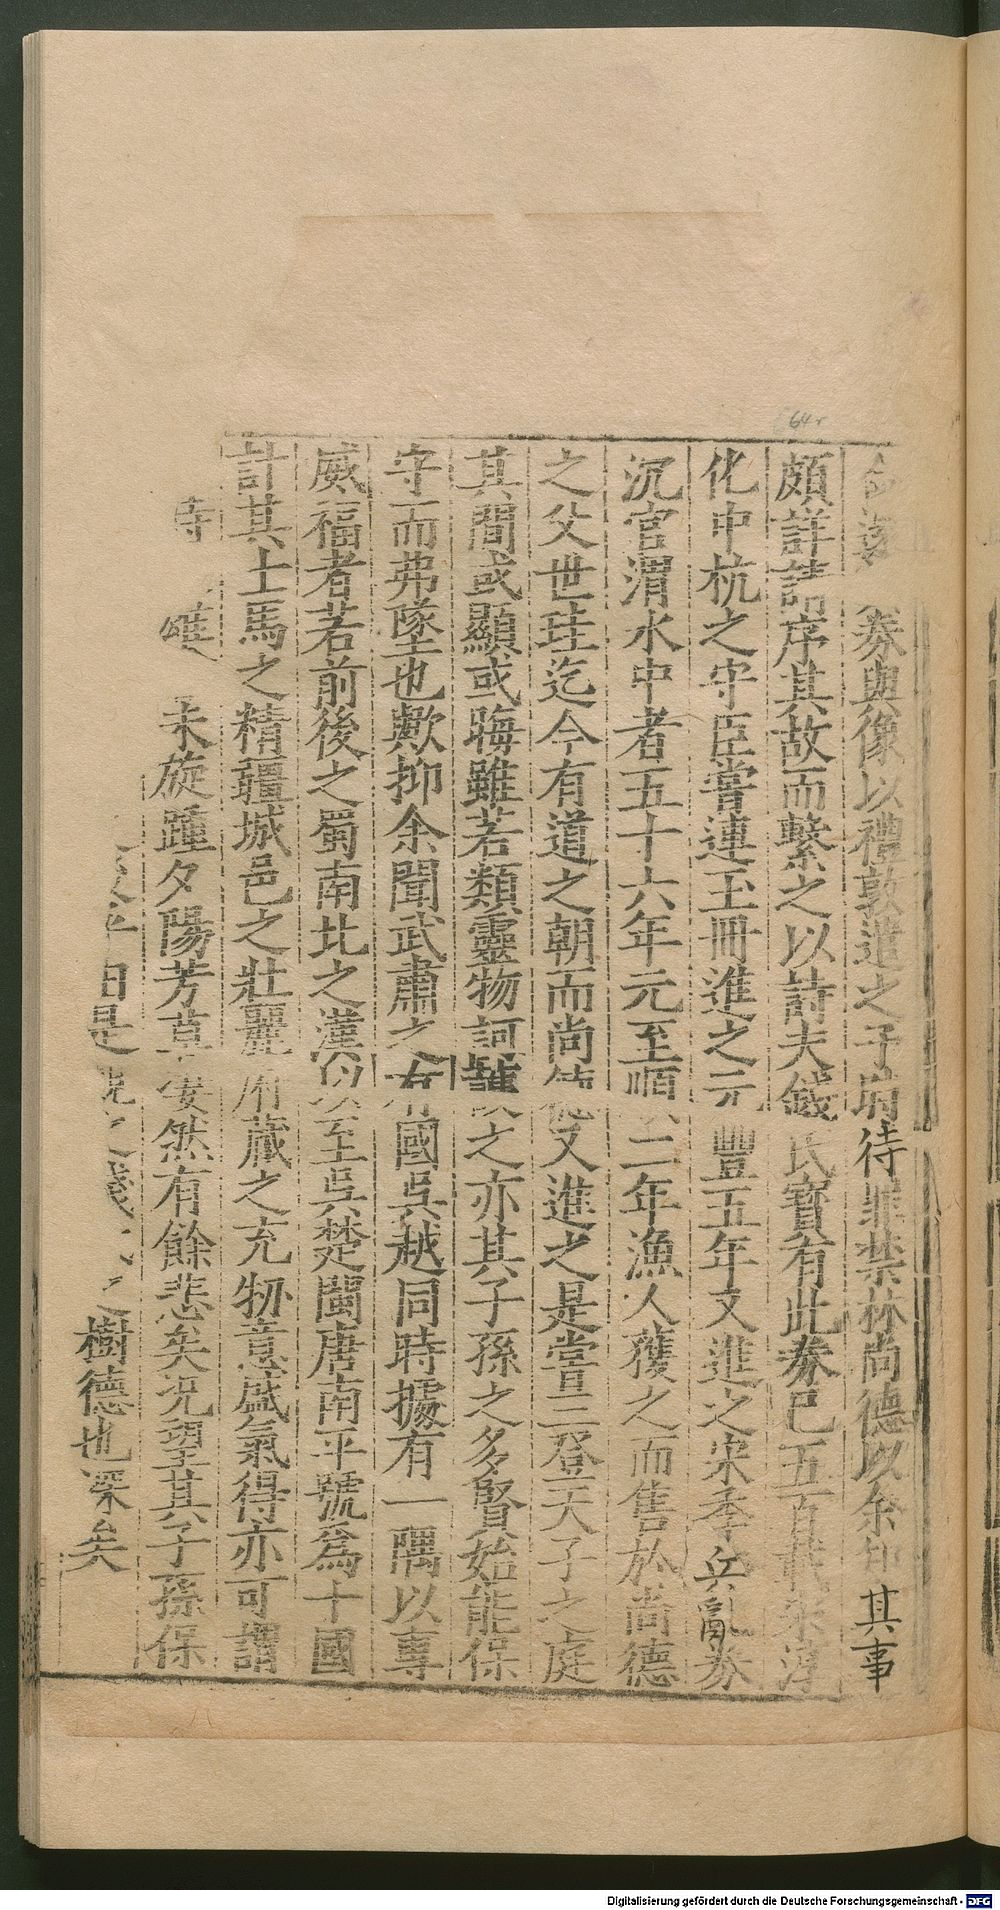 64r
券與像以禮敦遣之予時待罪禁林尚德以余知其事
頗詳請序其故而繫之以詩夫錢氏寶有此券已五百載宋淳
化中杭之守臣嘗連玉冊進之元豐五年又進之宋季兵亂券
沉官渭水中者五十六年元至順二年漁人獲之而售於尚德
之父世珪迄今有道之朝而尚德又進之是嘗三登天子之庭
其間或顯或晦雖若類靈物訶護之亦其子孫之多賢始能保
守而弗墜也歟抑余聞武肅之有國吳越同時據有一隅以專
威福者若前後之蜀南北之漢以至吳楚閩唐南平號爲十國
計其士馬之精疆城邑之壯麗府藏之充牣意盛氣得亦可謂
時 雄 未旋踵夕陽芳草凄然有餘悲矣况望其子孫保
日是 錢 之樹德也深矣
Digitalisierung gefördert durch die Deutsche Forschungsgemeinschaft - DFG